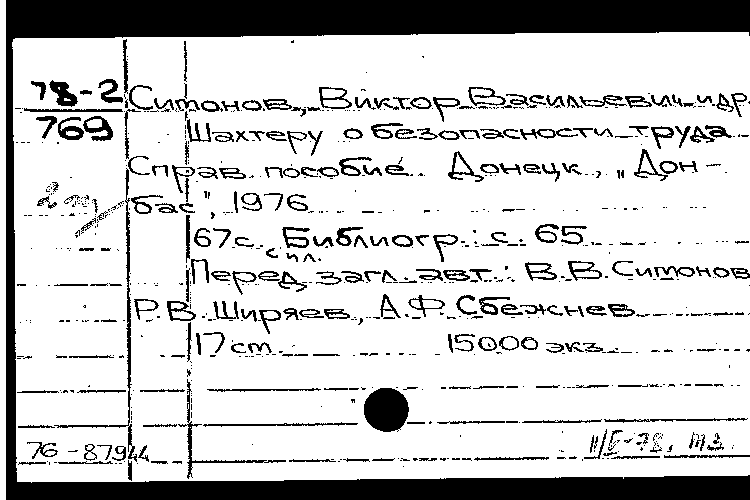 78-2 Ситонов, Виктор Васильевич и др.
769 Шахтеру о безопасности труда
Справ. пособие. Донецк, „Дон-
2 бас", 1976
67 с. с ил. Библиогр.: с. 65
Перед загл. авт.: В.В. Ситонов
Р.В. Ширяев, А.Ф. Сбежнев
17 см 15000 экз.
76-87944